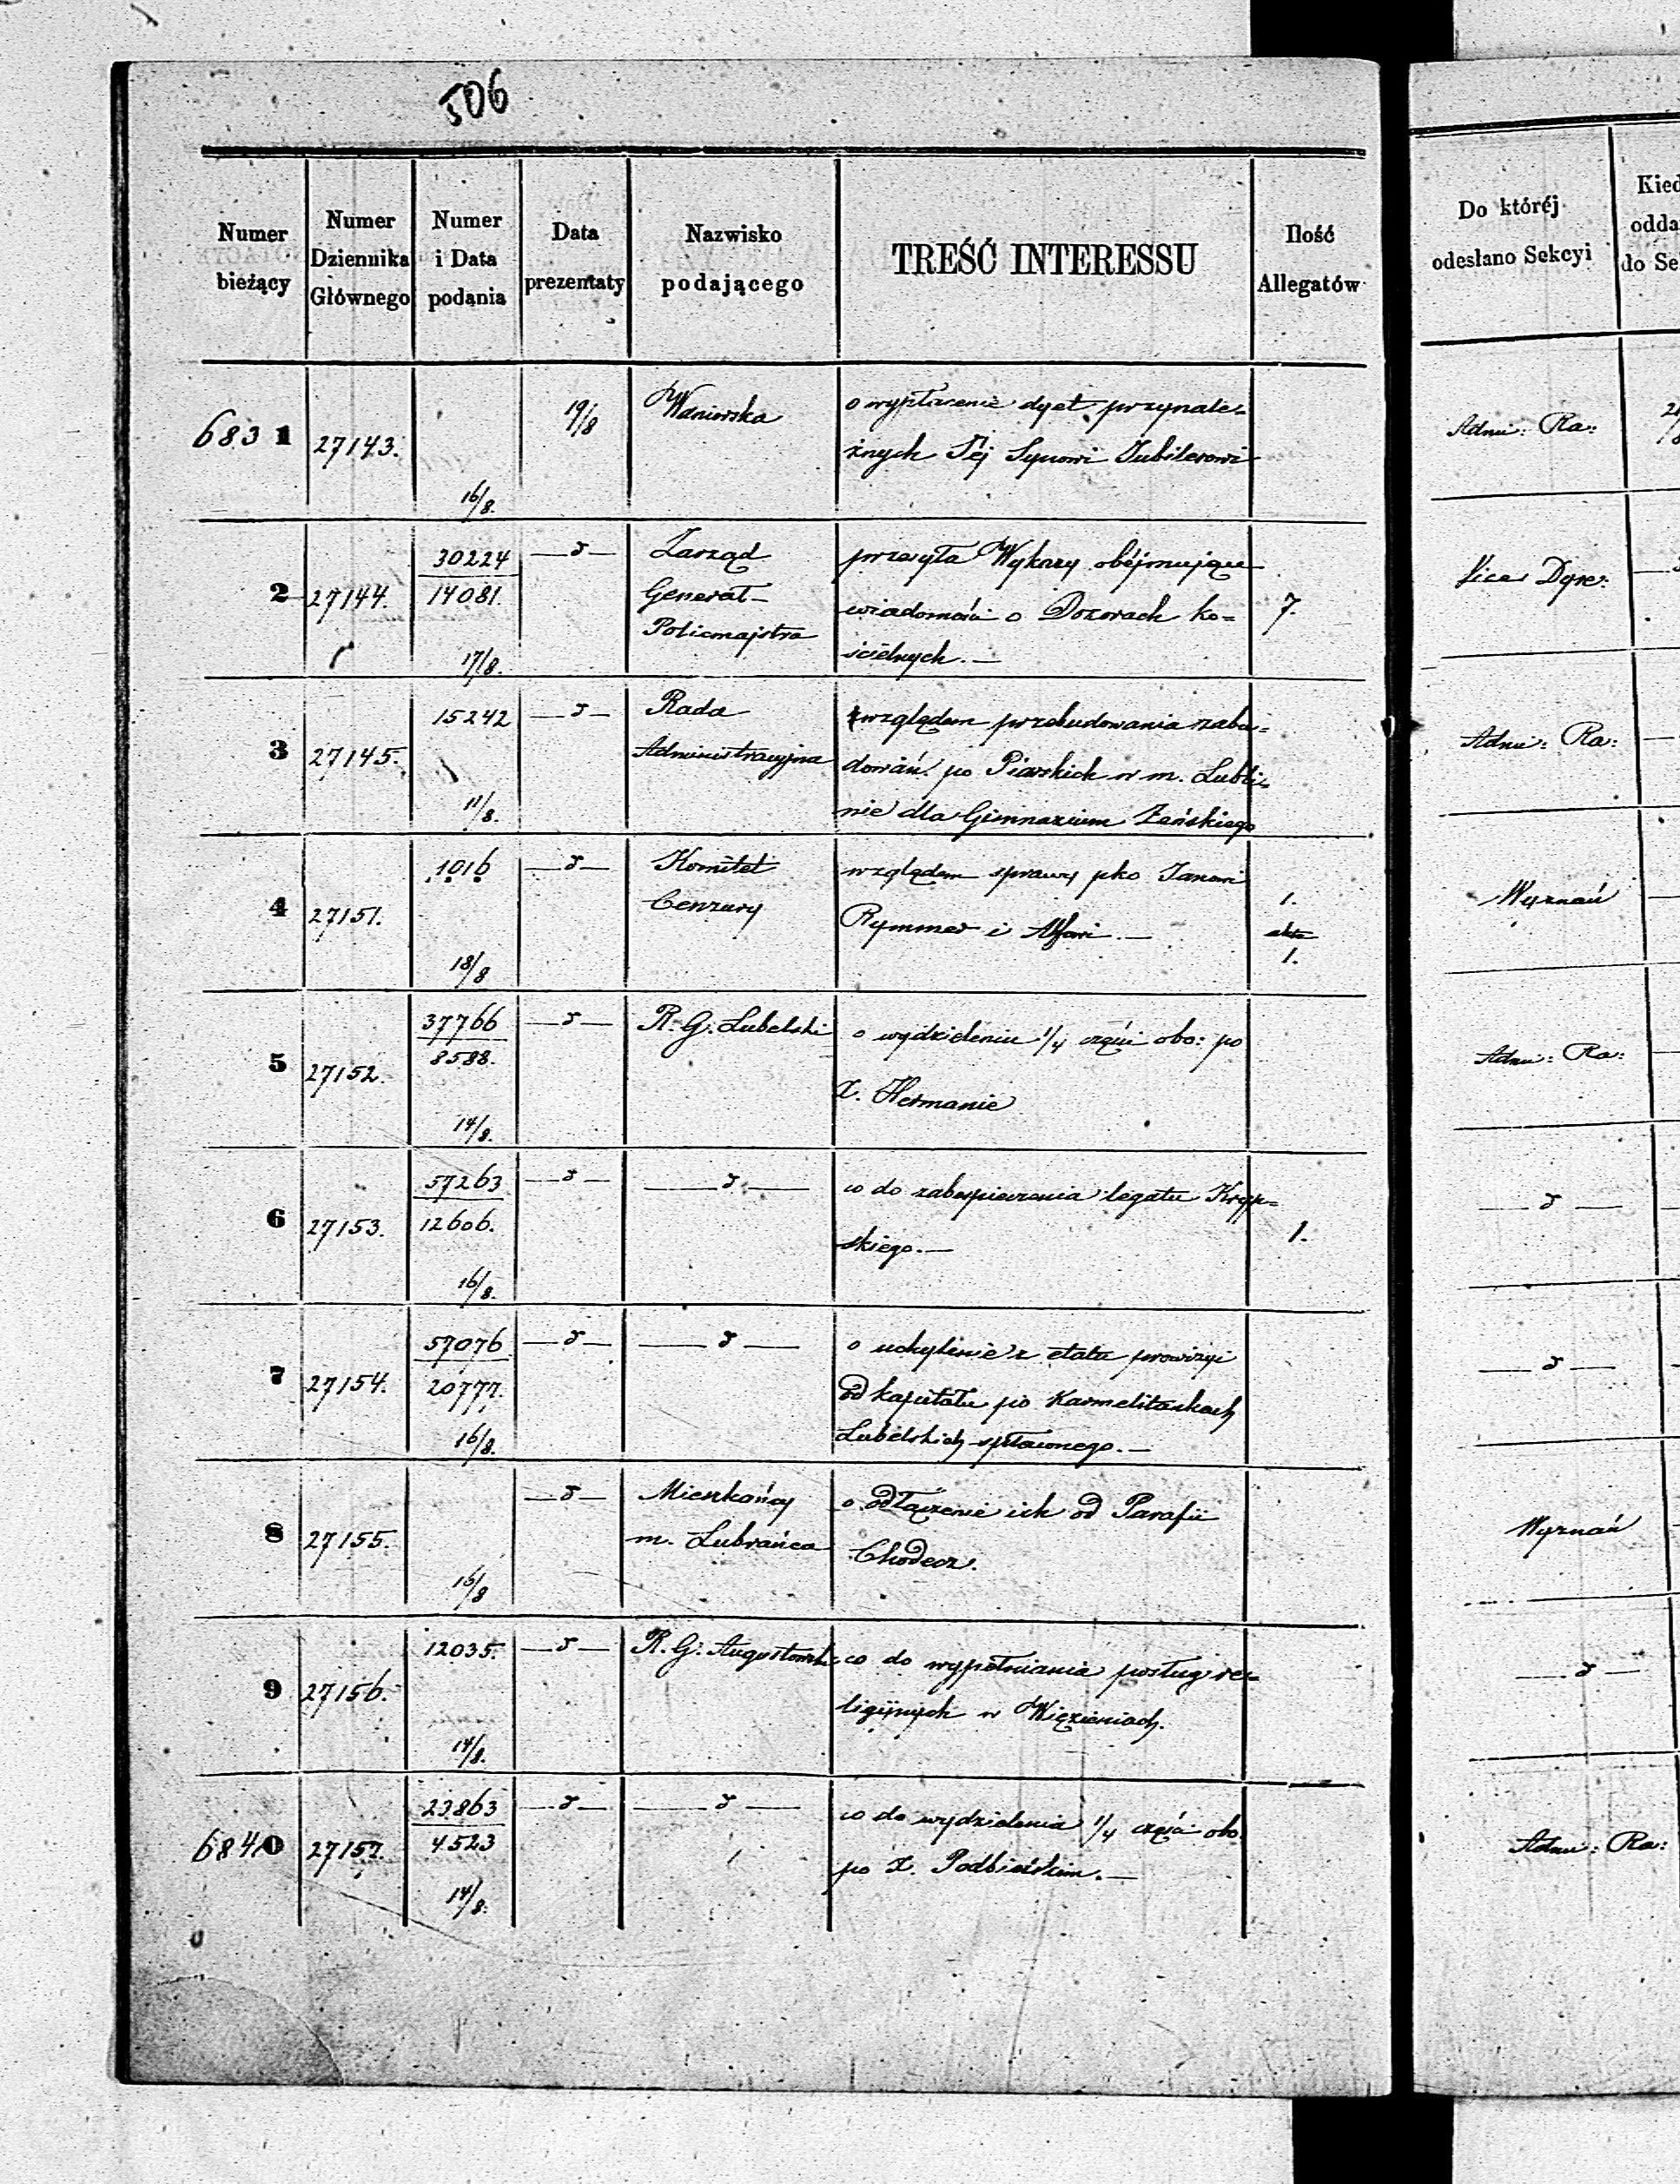 506
Numer bieżący
Numer Dziennika Głównego
Numer i Data podania
Data prezentaty
Nazwisko podającego
TREŚĆ INTERESSU
Ilość Allegatów
Do któréj odesłano Sekcyi
Kied
odda
do Se
6831 27143. 16/8. 19/8 o wypłacenie dyet przynale-
żnych Jéj Synowi Jubilerowi
Admi: Ra:
2 27144. 30224 / 14081. 17/8. —d— Zarząd
Generał-
Policmajstra
przesyła Wykazy obéjmujące
wiadomości o Dozorach ko=
ścielnych.—
7.
Vice Dyre:
3 27145. 15242 11/8. —d— Rada
Administracyjna
względem przebudowania zabu=
dowań po Piarskich w m. Lubli-
nie dla Gimnazium Żeńskiego
Admi: Ra:
4 27151. 1016 18/8 —d— Komitet
Cenzury
względem sprawy pko Janowi
Rymmer i
1.
akta
1.
Wyznań
5 27152. 37766 / 8588. 14/8. —d— R. G. Lubelski
o wydzielenie 1/4 części obo: po
X. Hermanie
Admi: Ra:
6 27153. 57263 / 12606. 16/8. —d— —d—
co do zabezpieczenia legatu Kryp=
skiego.—
1.
—d—
7 27154. 57076 / 20777. 16/8. —d— —d—
o uchylenie z etatu prowizyi
od kapitału po Karmelitankach
Lubelskich spłaconego.—
—d—
8 27155. 16/8 —d— Mieszkańcy
m. Lubrańca
o odłączenie ich od Parafii
Chodecz.
Wyznań
9 27156. 12035. 14/8. —d— R. G. Augustowski
co do wypełniania posług re=
ligijnych w Więzieniach.
—d—
6840 27157. 23863 / 4523 14/8. —d— —d—
co do wydzielenia 1/4 części obo.
po X. Podbielskim.—
Admi: Ra: